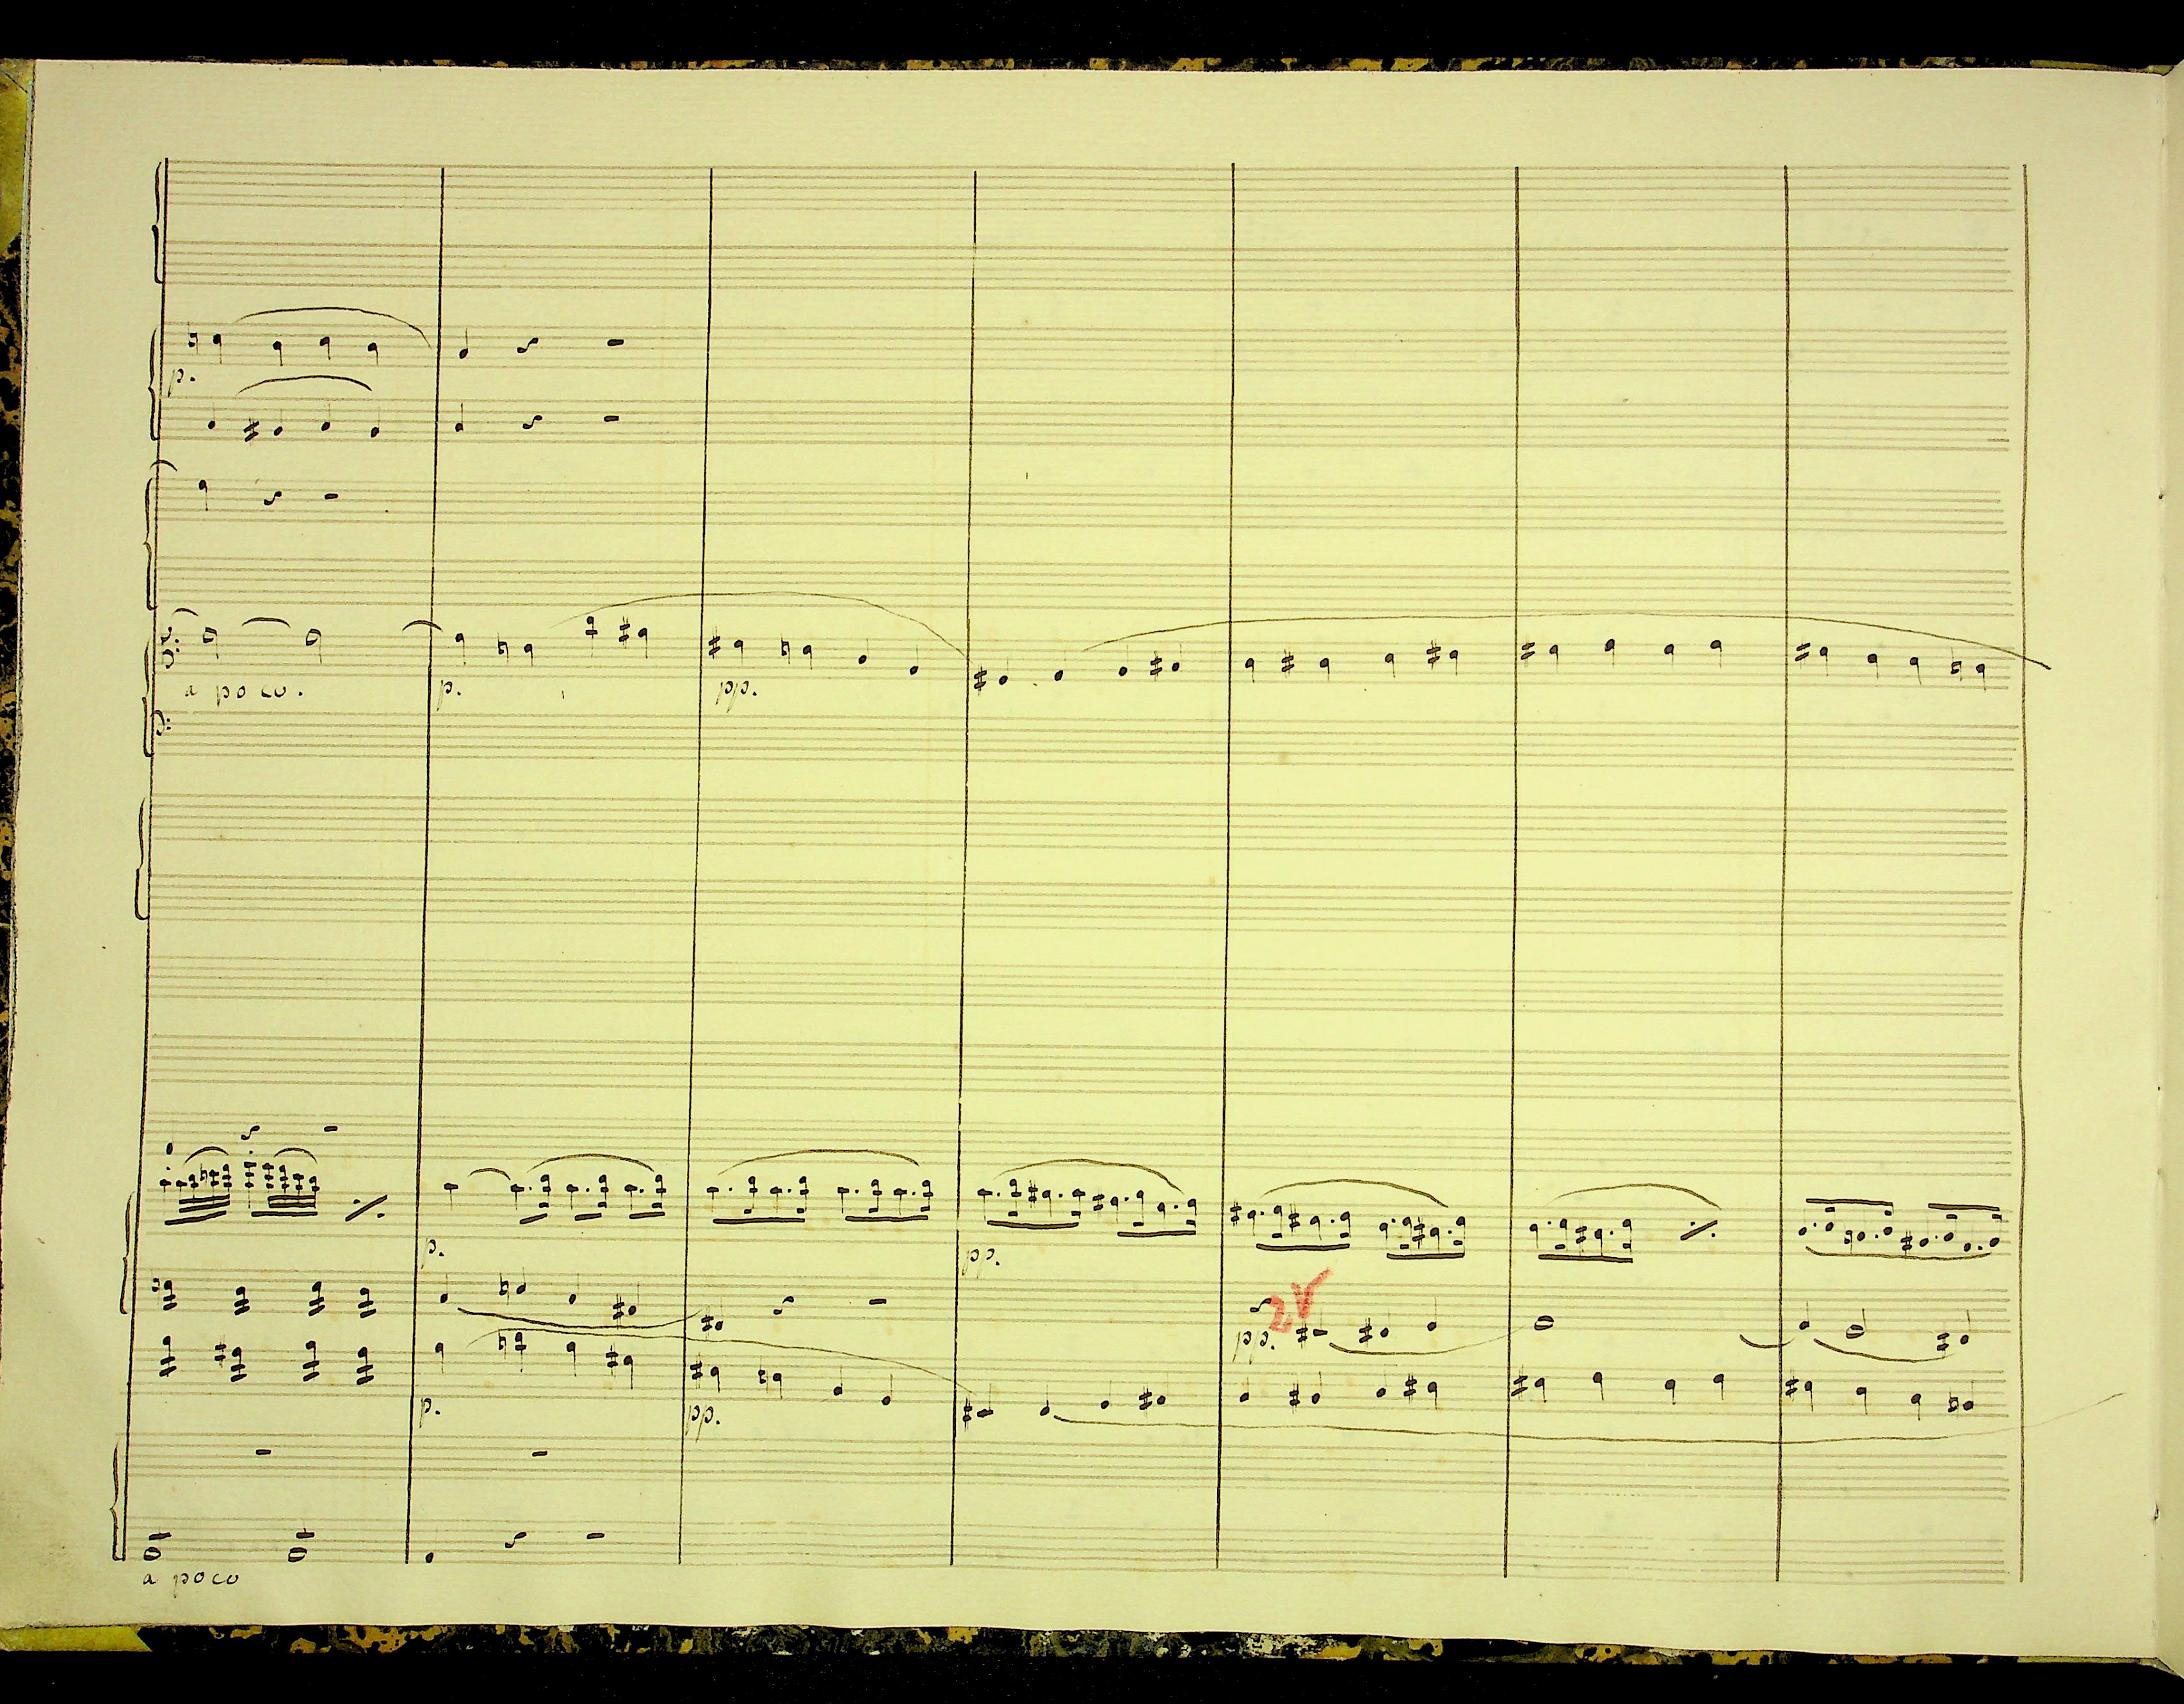 p.
a poco. p. pp.
p. pp.
2V
pp.
p. pp.
a poco